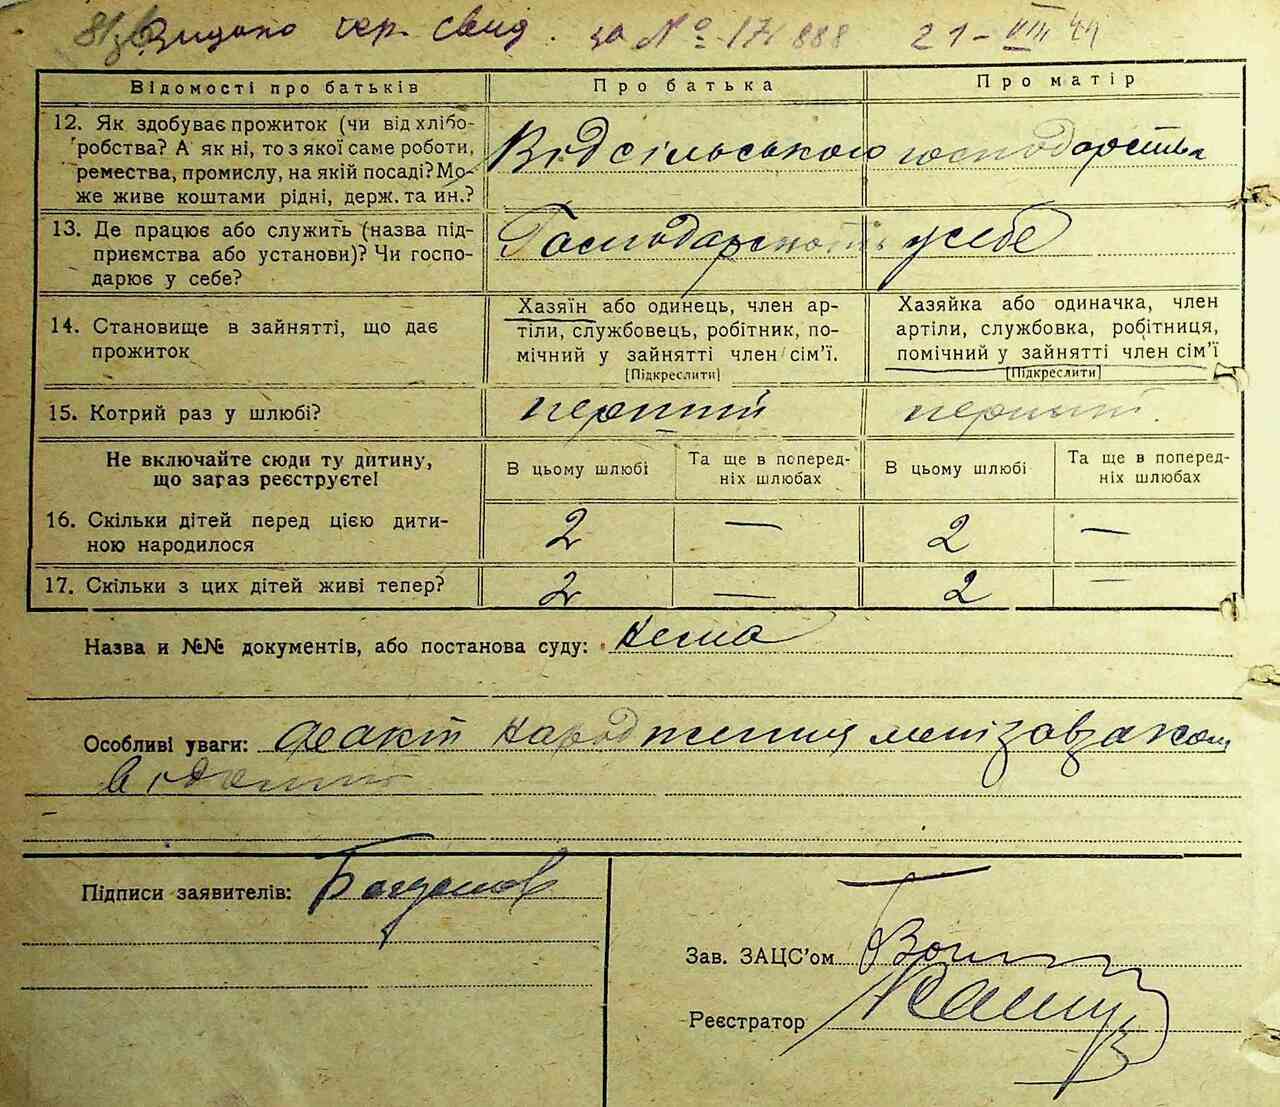 Видано чер. свид. за № 171888 21-VIII 44
Відомості про батьків
Про батька
Про матір
12. Як здобуває прожиток (чи від хлібо-
робства? А як ні, то з якої саме роботи,
ремества, промислу, на якій посаді? Мо-
же живе коштами рідні, держ. та ин.?
Від сільського господарства
13. Де працює або служить (назва під-
приємства або установи)? Чи госпо-
дарює у себе?
у себе
14. Становище в зайнятті, що дає
прожиток
Хазяїн або одинець, член ар-
тіли, службовець, робітник, по-
мічний у зайнятті член сім'ї.
[Підкреслити]
Хазяйка або одиначка, член
артіли, службовка, робітниця,
помічний у зайнятті член сім'ї
[Підкреслити]
15. Котрий раз у шлюбі?
перший
перший
Не включайте сюди ту дитину,
що зараз реєструєте!
В цьому шлюбі
Та ще в поперед-
ніх шлюбах
В цьому шлюбі
Та ще в поперед-
ніх шлюбах
16. Скільки дітей перед цією дити-
ною народилося
2 — 2 —
17. Скільки з цих дітей живі тепер?
2 — 2 —
Назва и №№ документів, або постанова суду: нема
Особливі уваги: факт народження мені
Підписи заявителів:
Зав. ЗАЦС'ом
Реєстратор